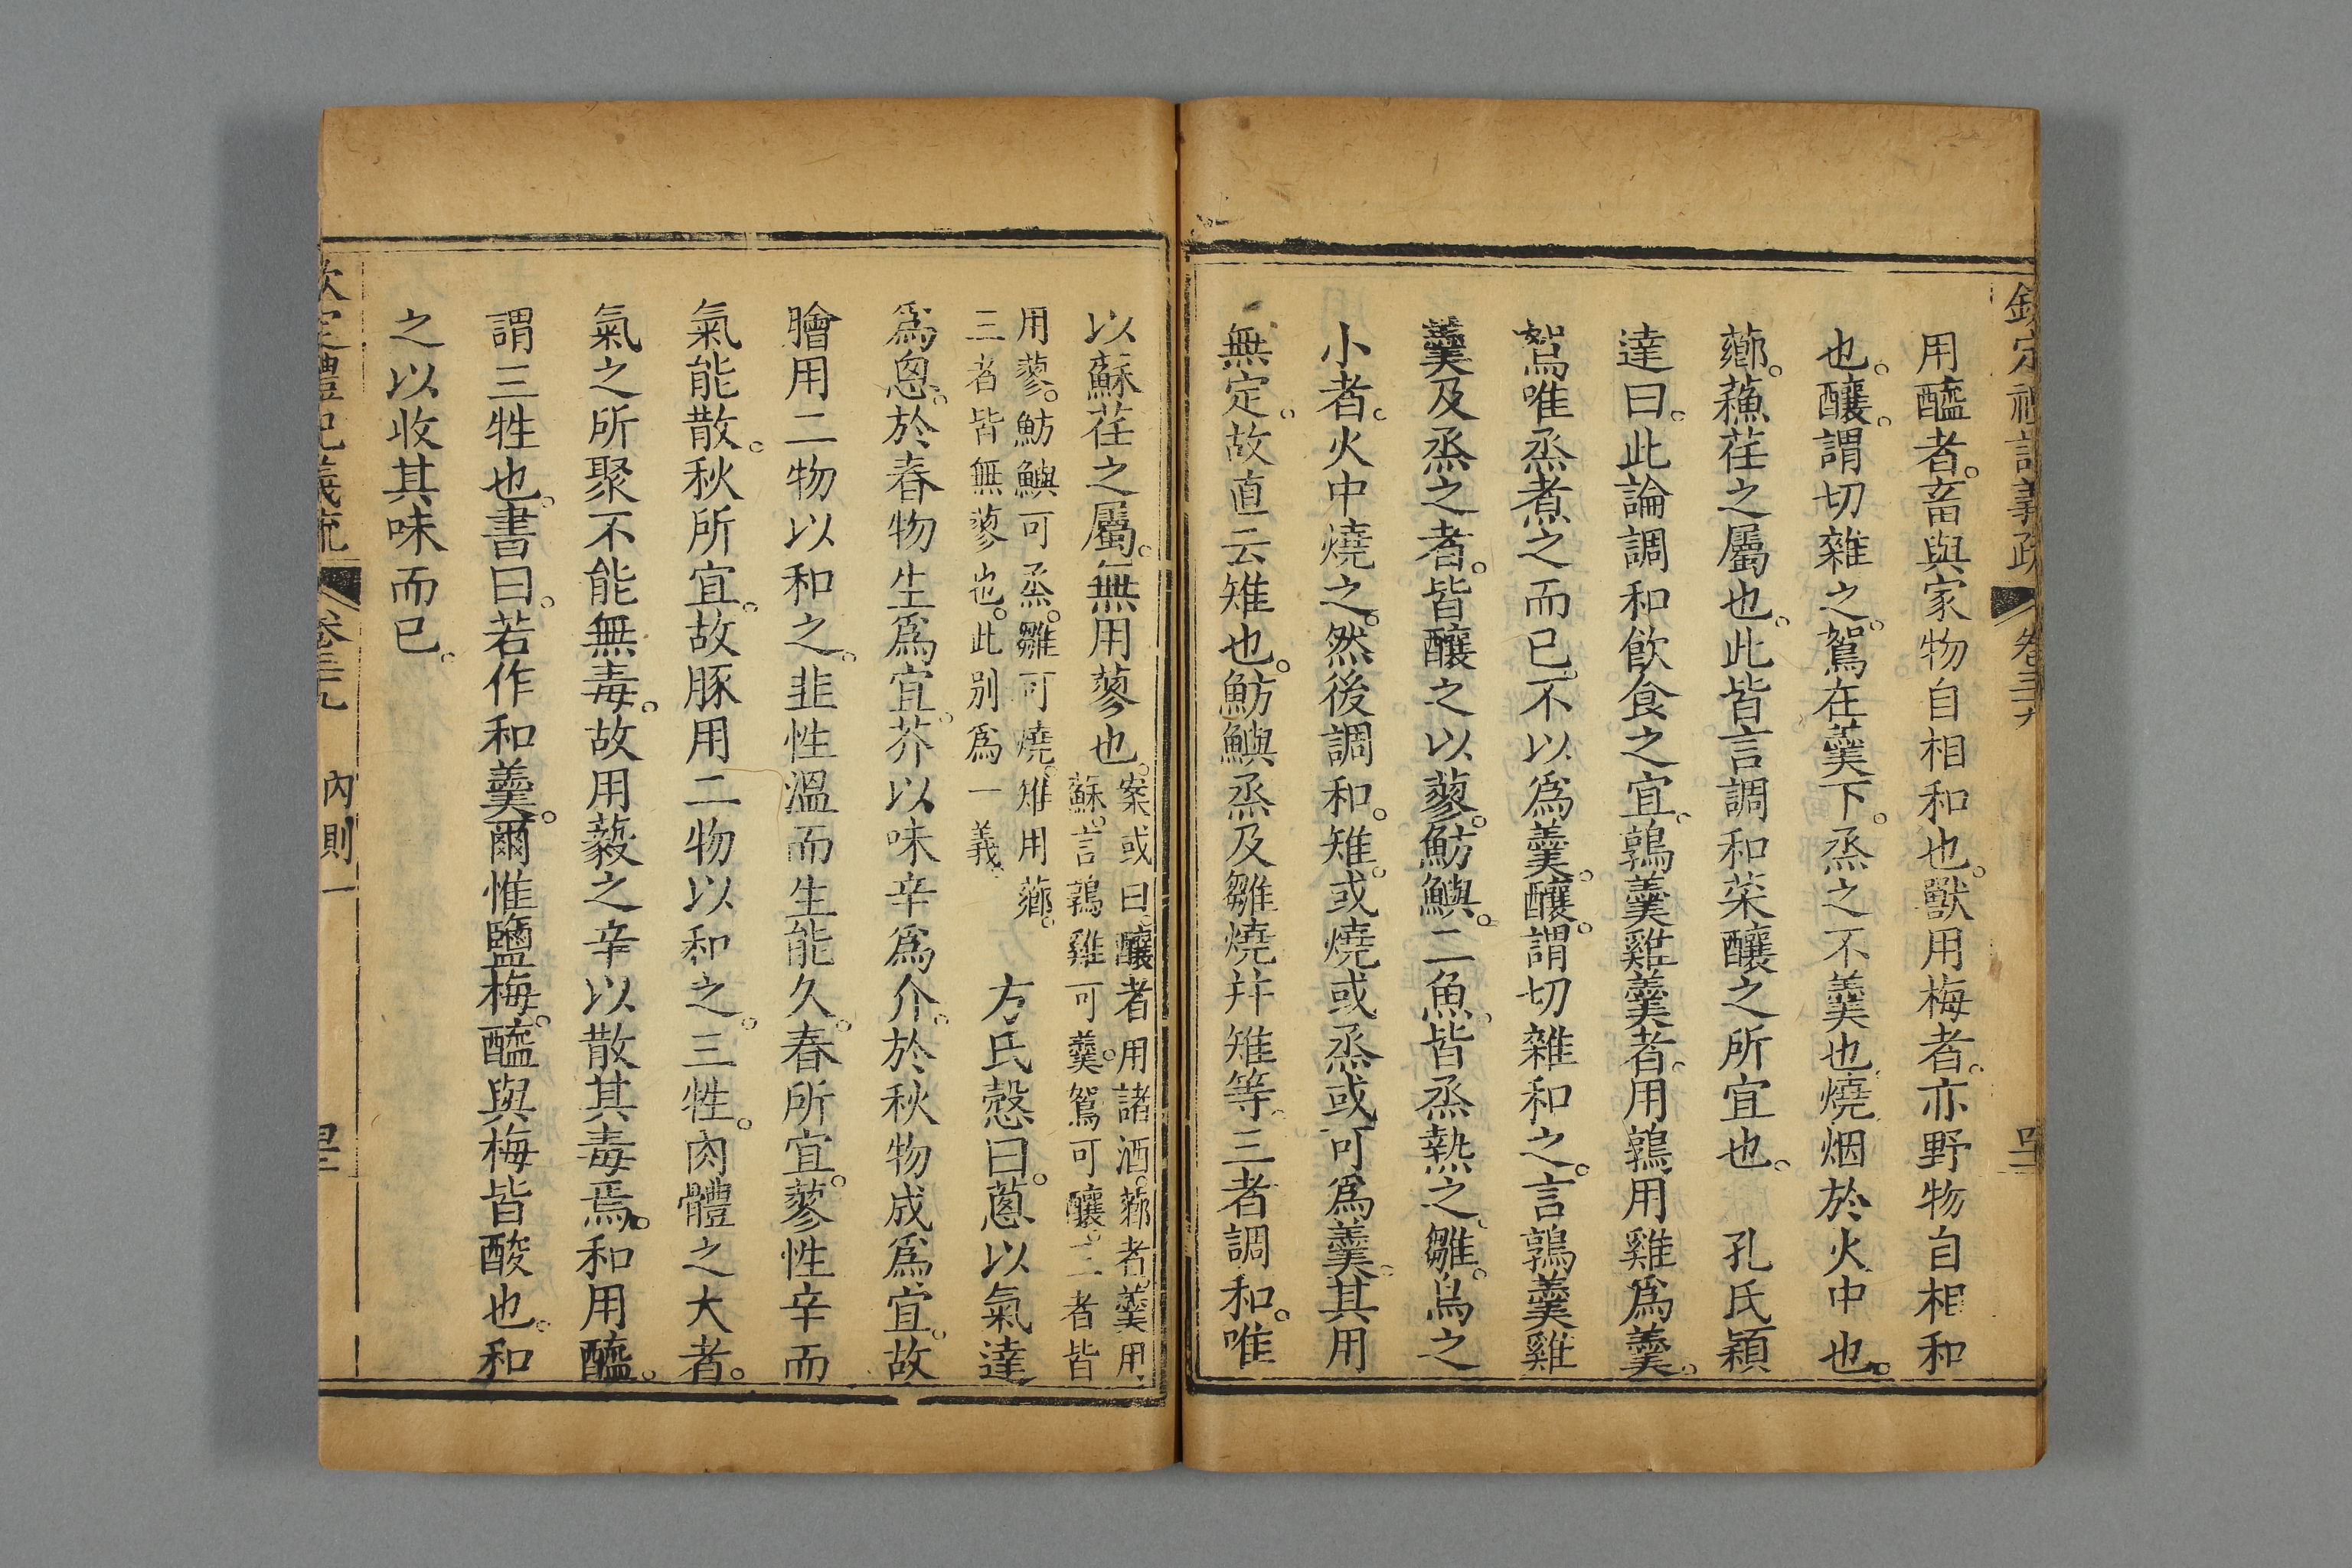 欽定禮記義疏 卷三十九
用醯者。畜與家物自相和也。獸用梅者。亦野物自相和
也。釀。謂切雜之。鴽在羹下。烝之不羹也。燒烟於火中也。
薌。蘓荏之屬也。此皆言調和菜釀之所宜也。 孔氏穎
達曰。此論調和飲食之宜。鶉羹雞羹者。用鶉用雞爲羹。
鴽唯烝煮之而已。不以爲羹。釀。謂切雜和之。言鶉羹雞
羹及烝之者。皆釀之以蓼。魴鱮。二魚。皆烝熱之。雛。鳥之
小者。火中燒之。然後調和。雉。或燒或烝或可爲羹。其用
無定。故直云雉也。魴鱮烝及雛燒幷雉等。三者調和。唯
以蘇荏之屬。無用蓼也。案或曰。釀者用諸酒。薌者。羹用
蘇。言鶉雞可羹。鴽可釀。三者皆
用蓼。魴鱮可烝。雛可燒。雉用薌。
三者皆無蓼也。此别爲一義。
方氏慤曰。蔥以氣達
爲悤。於春物生爲宜。芥以味辛爲介。於秋物成爲宜。故
膾用二物以和之。韭性溫而生能久。春所宜。蓼性辛而
氣能散。秋所宜。故豚用二物以和之。三牲。肉體之大者。
氣之所聚不能無毒。故用藙之辛以散其毒焉。和用醯。
謂三牲也。書曰。若作和羹。爾惟鹽梅。醯與梅皆酸也。和
之以收其味而已。
欽定禮記義疏 卷三十九 內則一